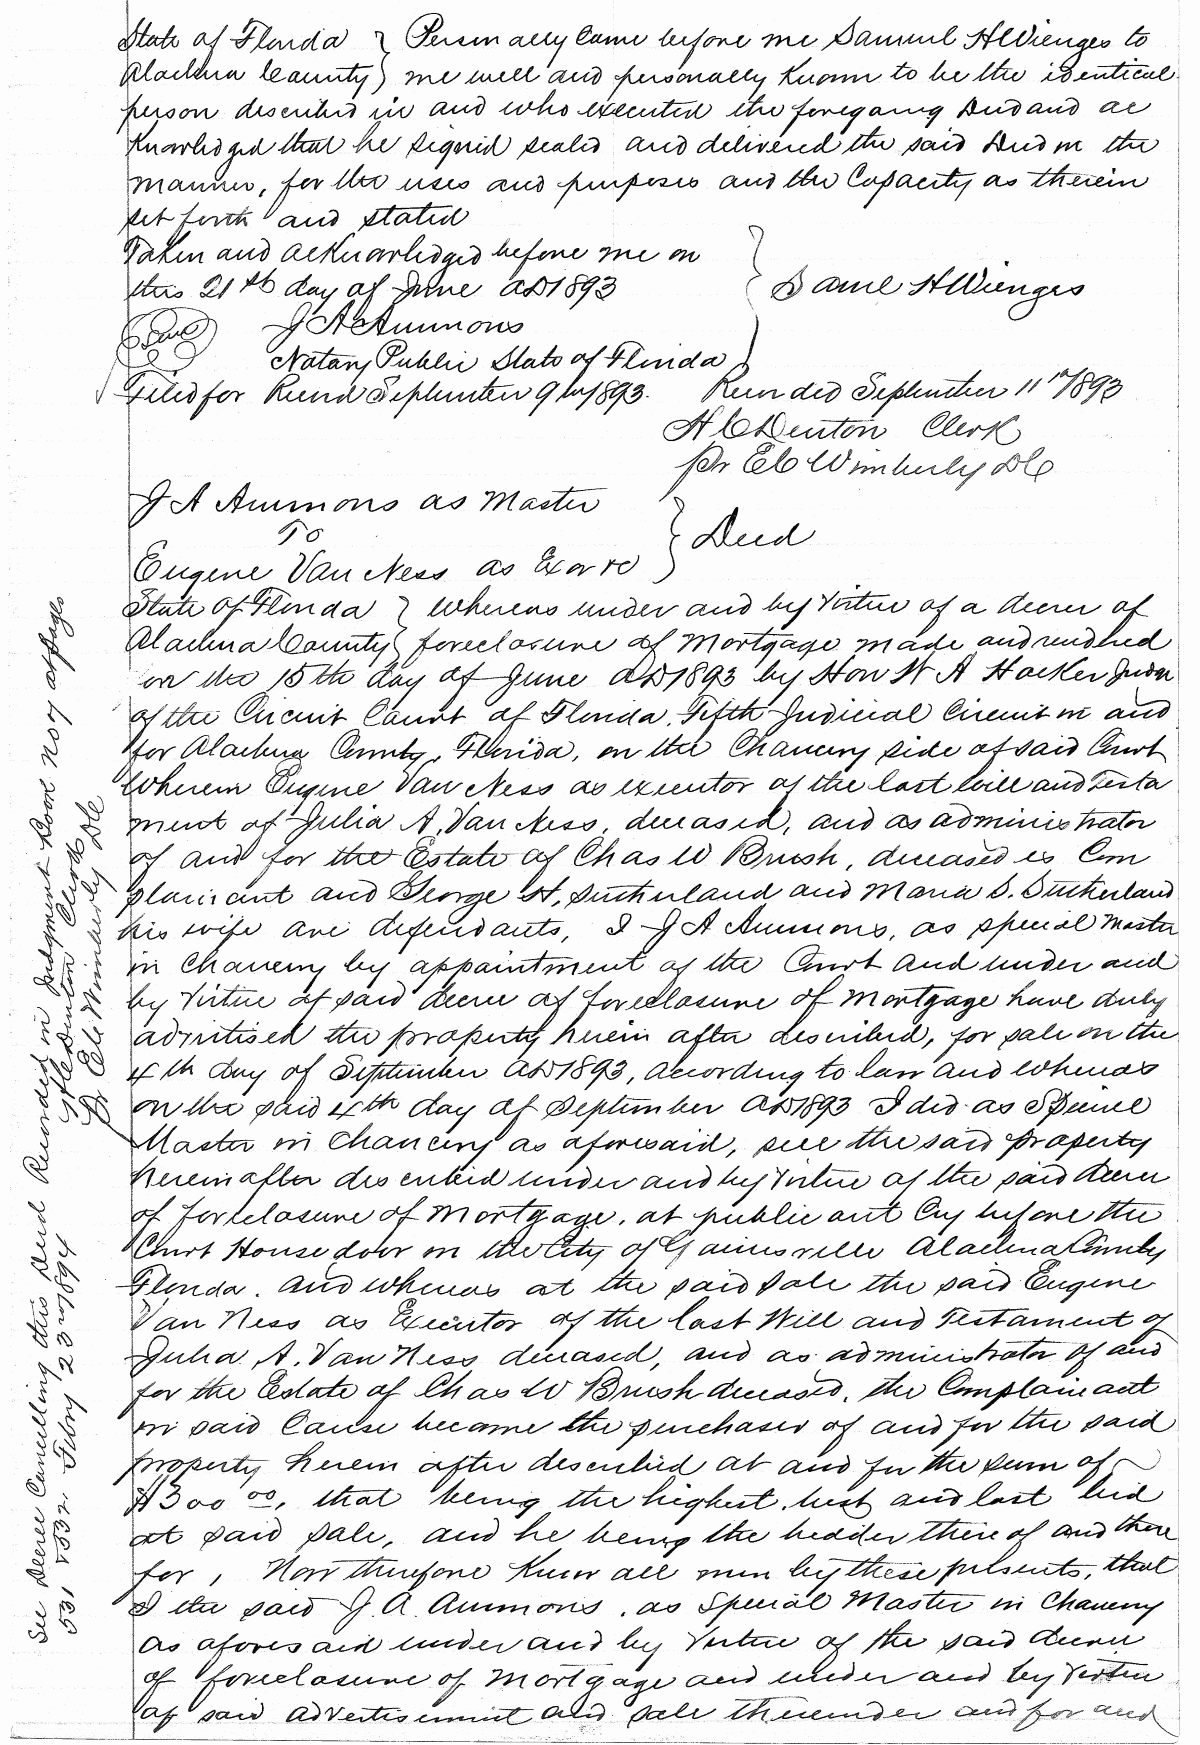 State of Florida } Personally Came before me Samuel H Wienges to
Alachua County } me well and personally Known to be the identical
person described in and who executed the foregoing Deed and ac
Knowledged that he signed sealed and delivered the said Deed in the
manner, for the uses and purposes and the Capacity as therein
set forth and stated
Taken and acknowledged before me on
this 21st day of June AD 1893 } Saml H Wienges
Seal J A Ammons
Notary Public State of Florida
Filed for Record September 9th 1893. Recorded September 11th 1893
H C Denton Clerk
pr E C Wimberly DC
J A Ammons as Master
To } Deed
Eugene Van Ness as Exor &c
State of Florida } Whereas under and by virtue of a decree of
Alachua County } foreclosure of Mortgage made and rendered
on the 15th day of June AD 1893 by Hon W A Hocker Judge
of the Circuit Court of Florida, Fifth Judicial Circuit in and
for Alachua County, Florida, on the Chancery side of said Court
Wherein Eugene Van Ness as executor of the last will and Testa
ment of Julia A. Van Ness, deceased, and as administrator
of and for the Estate of Chas W Brush, deceased is Com
plainant and George H. Sutherland and Maria S. Sutherland
his wife are defendants, I J A Ammons, as special Master
in Chancery by appointment of the Court and under and
by virtue of said decree of foreclosure of Mortgage have duly
advertised the property herein after described, for sale on the
4th day of September AD 1893, according to law and whereas
on the said 4th day of September AD 1893 I did as Special
Master in Chancery as aforesaid, sell the said property
hereinafter described under and by virtue of the said decree
of foreclosure of Mortgage, at public out Cry before the
Court House door in the City of Gainesville Alachua County
Florida. and whereas at the said sale the said Eugene
Van Ness as Executor of the last Will and Testament of
Julia A. Van Ness deceased, and as administrator of and
for the Estate of Chas W Brush deceased, the Complainant
in said Cause became the purchaser of and for the said
property herein after described at and for the sum of
$300 00, that being the highest, best and last bid
at said sale, and he being the bidder there of and there
for, Now therefore Know all men by these presents, that
I the said J. A. Ammons, as Special Master in Chancery
as aforesaid under and by virtue of the said decree
of foreclosure of Mortgage and under and by virtue
of said advertisement and sale thereunder and for and
See Decree Cancelling this Deed Recorded in Judgment Book No 7 at pages
531 & 532. Feby 23rd 1894 H C Denton Clerk
pr E C Wimberly DC